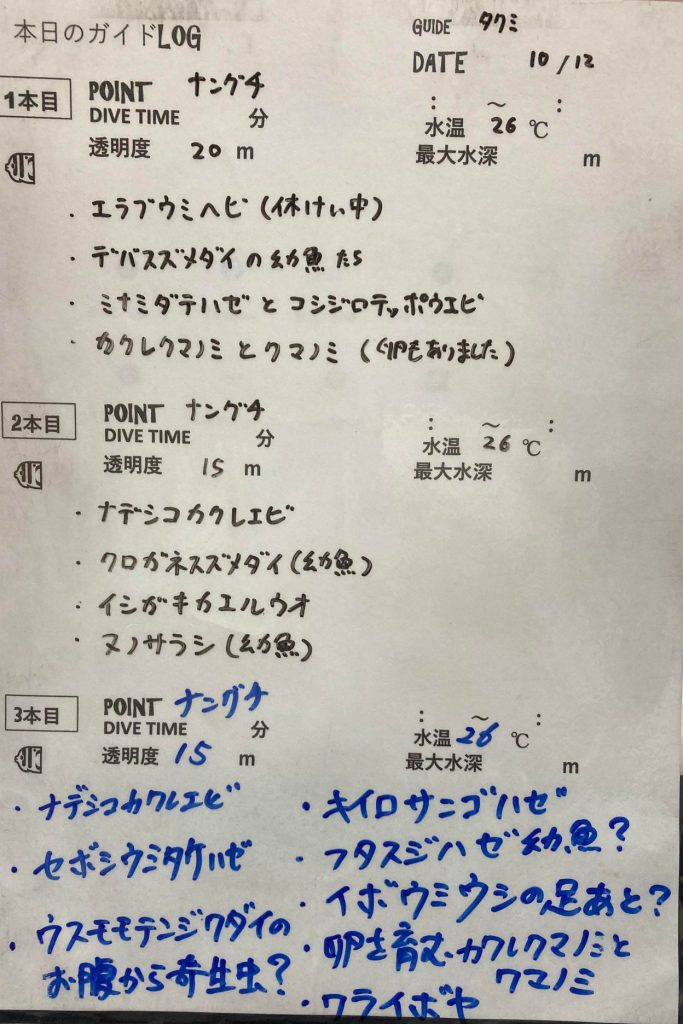 本日のガイドLOG
GUIDE タクミ
DATE 10/12
1本目
POINT ナングチ
DIVE TIME 分
: ～ :
透明度 20 m
水温 26 ℃
最大水深 m
・エラブウミヘビ (休けい中)
・デバスズメダイの幼魚たち
・ミナミダテハゼとコシジロテッポウエビ
・カクレクマノミとクマノミ (卵もありました)
2本目
POINT ナングチ
DIVE TIME 分
: ～ :
透明度 15 m
水温 26 ℃
最大水深 m
・ナデシコカクレエビ
・クロガネスズメダイ(幼魚)
・イシガキカエルウオ
・ヌノサラシ (幼魚)
3本目
POINT ナングチ
DIVE TIME 分
: ～ :
透明度 15 m
水温 26 ℃
最大水深 m
・ナデシコカクレエビ
・セボシウミタケハゼ
・ウスモモテンジクダイの
お腹から寄生虫?
・キイロサンゴハゼ
・フタスジハゼ幼魚?
・イボウミウシの足あと?
・卵を育むカクレクマノミと
クマノミ
・ワライボヤ